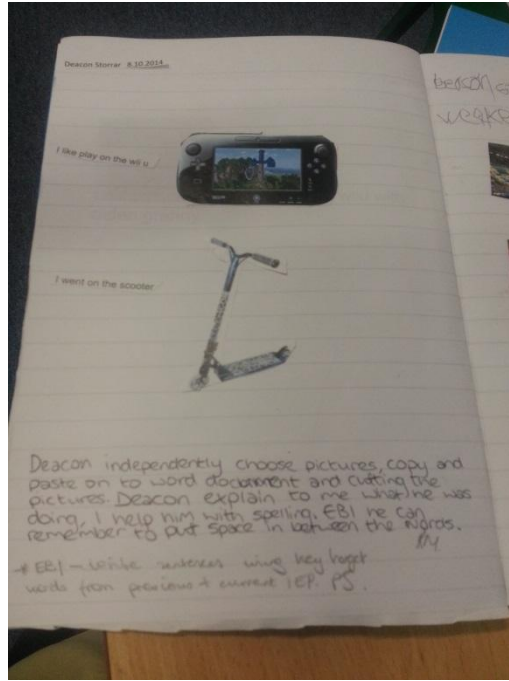 Deacon Storrar 8.10.2014
I like play on the wii u
I went on the scooter
Deacon independently choose pictures, copy and
paste on to word document and cutting the
pictures. Deacon explain to me what he was
doing, I help him with spelling. EBI he can
remember to put space in between the words.
* EBI - write sentences using key target
words from previous + current IEP. PS.
Deacon